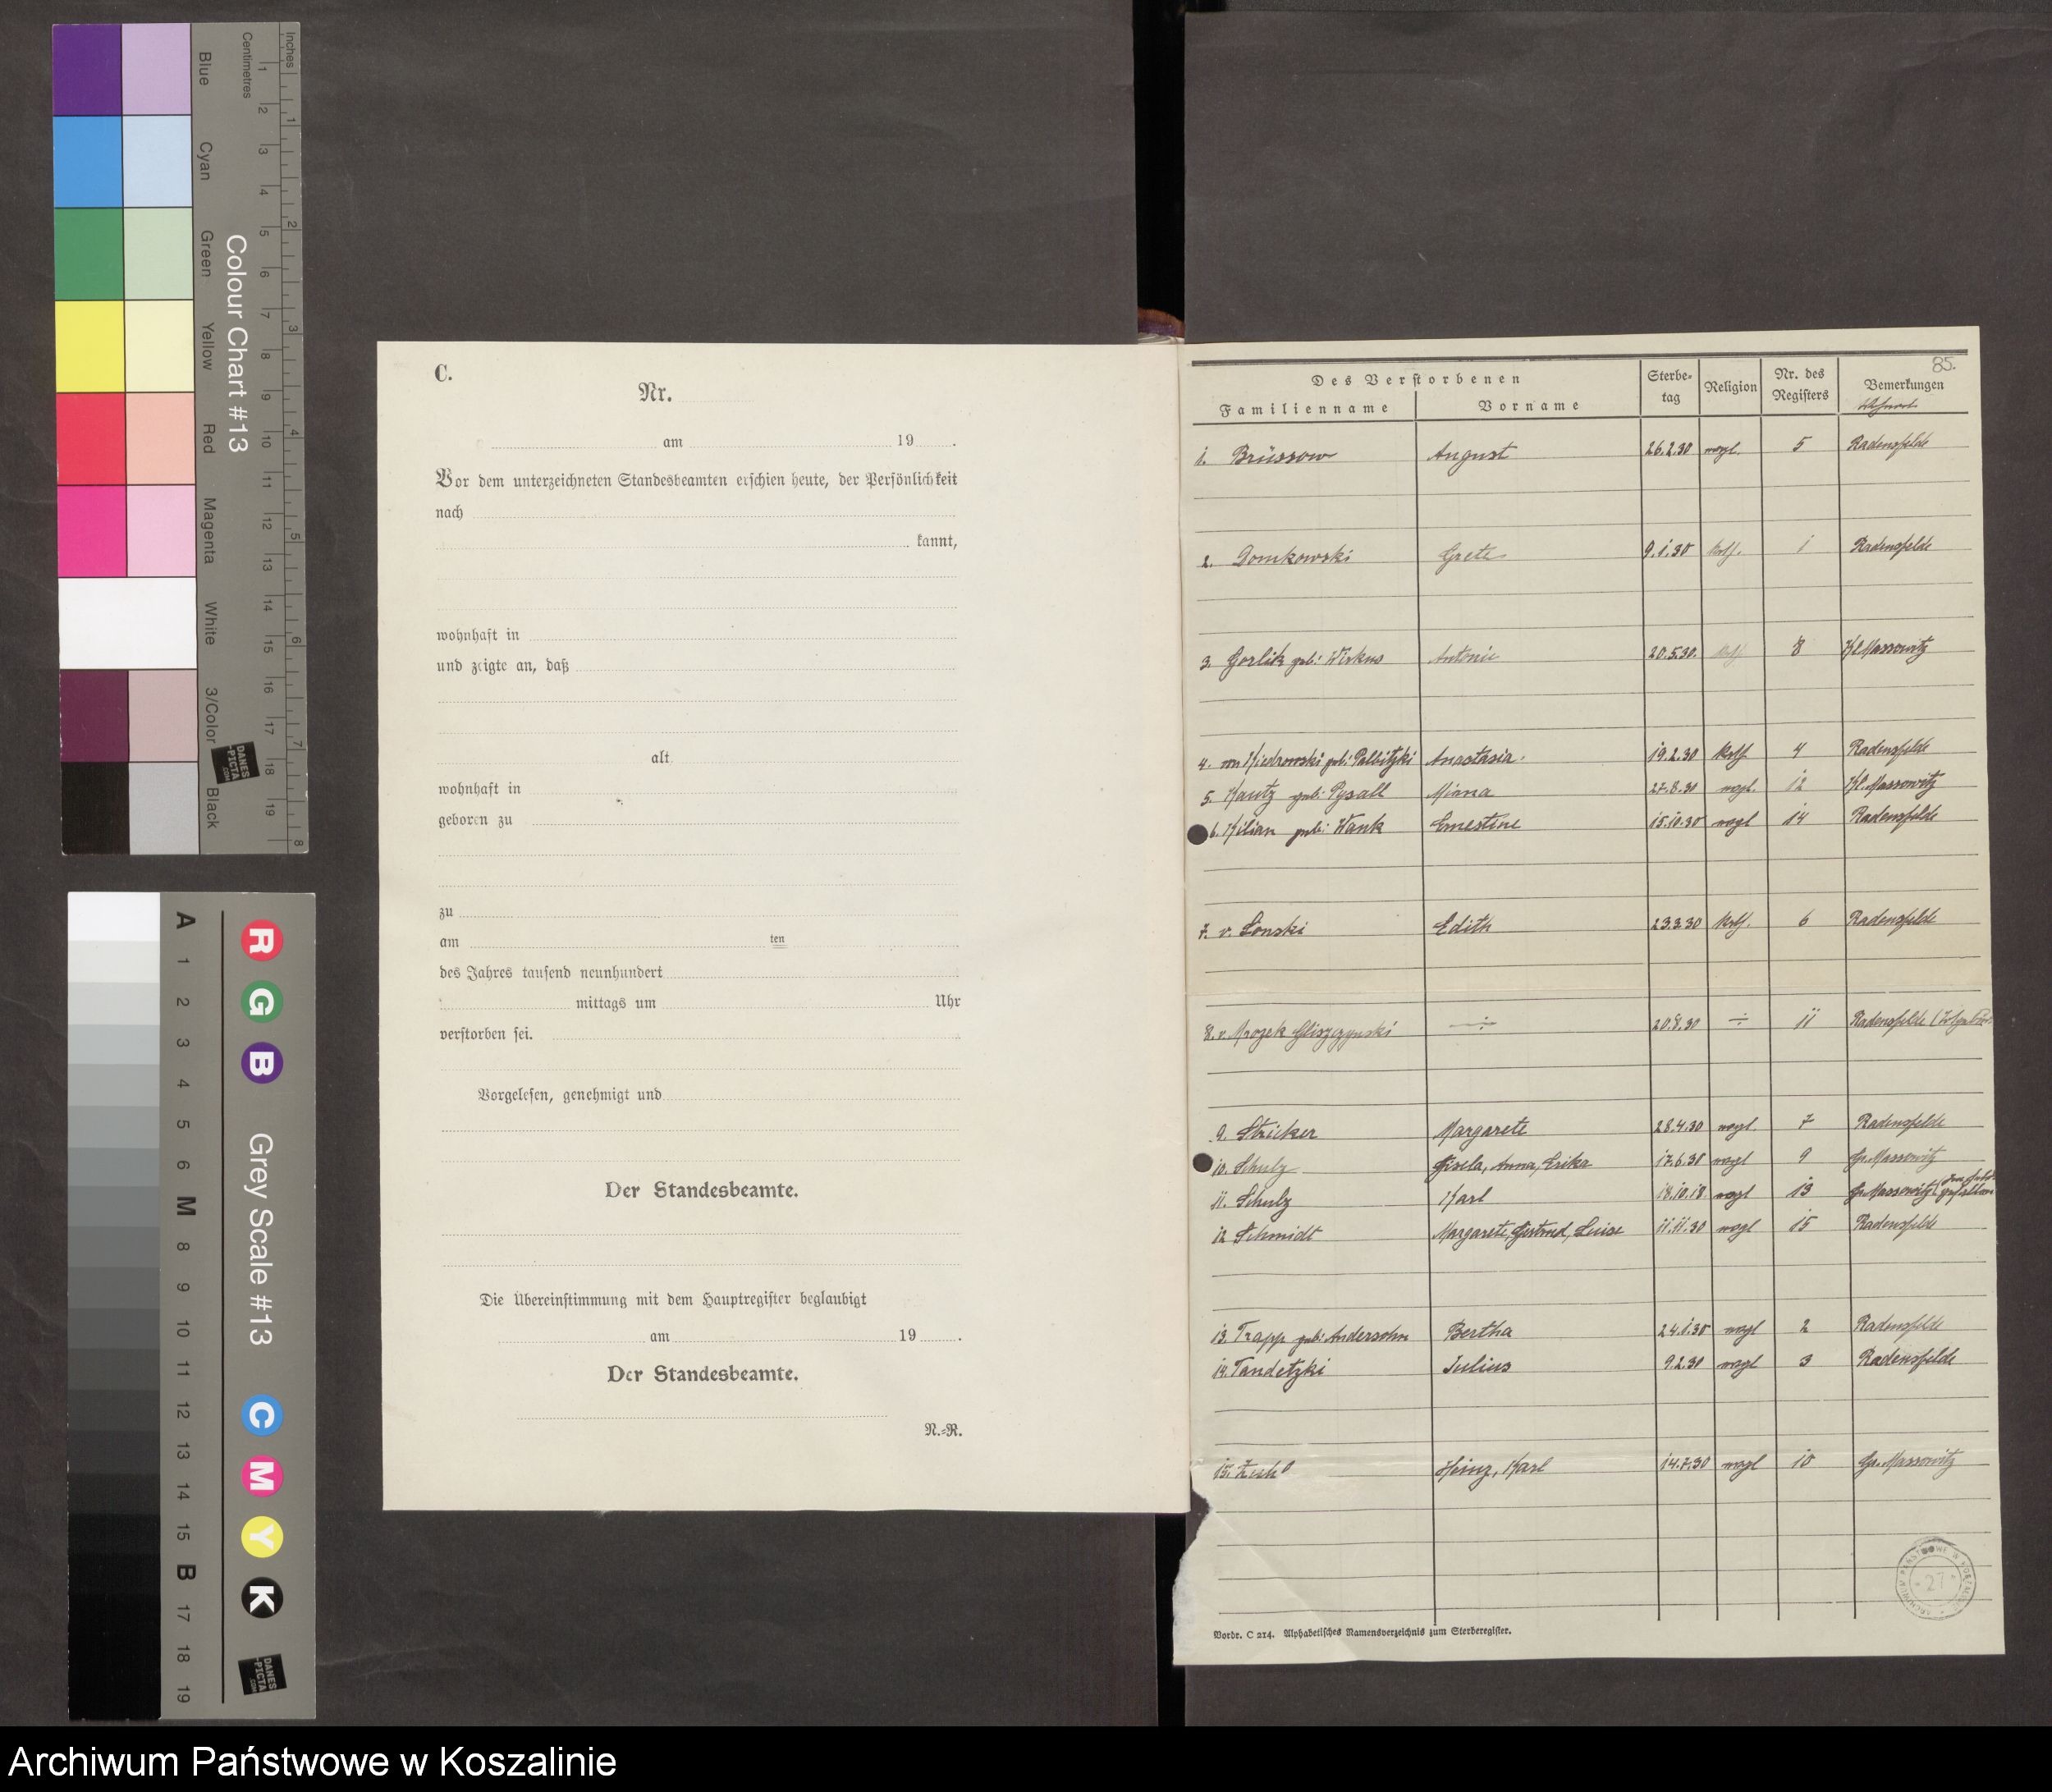 Blue
Cyan
Green
Yellow
Red
Magenta
White
3/Color
Black
Colour Chart #13
Centimetres
Inches
1 2 3 4 5 6 7 8 9 10 11 12 13 14 15 16 17 18 19
1 2 3 4 5 6 7 8
DANES
-PICTA
.COM
A 1 2 3 4 5 6 M 8 9 10 11 12 13 14 15 B 17 18 19
R G B
Grey Scale #13
C M Y K
DANES
-PICTA
.COM
C.
Nr.
am 19 .
Vor dem unterzeichneten Standesbeamten erschien heute, der Persönlichkeit
nach
kannt,
wohnhaft in
und zeigte an, daß
alt
wohnhaft in
geboren zu
zu
am ten
des Jahres tausend neunhundert
mittags um Uhr
verstorben sei.
Vorgelesen, genehmigt und
Der Standesbeamte.
Die Übereinstimmung mit dem Hauptregister beglaubigt
am 19 .
Der Standesbeamte.
N.-R.
85.
Des Verstorbenen Sterbe-tag Religion Nr. des Registers Bemerkungen
Familienname Vorname
1. Brüssow August 26.2.30 evgl. 5 Radensfelde
2. Domkowski Grete 9.1.30 kath. 1 Radensfelde
3. Gorlik geb: Wirkus Antonie 20.5.30. kath 8 Kl Massowitz
4. von Kiedrowski geb: Palbitzki Anastasia. 19.2.30 kath 4 Radensfelde
5. Kautz geb: Pysall Minna 27.8.30 evgl. 12 Kl. Massowitz
6. Kilian geb: Wank Ernestine 15.10.30 evgl 14 Radensfelde
7. v. Lonski Edith 23.3.30 kath. 6 Radensfelde
8. v. Mrozek Gliszczynski ÷ 20.8.30 ÷ 11 Radensfelde
9. Stricker Margarete 28.4.30 evgl. 7 Radensfelde
10. Schulz Gisela, Anna, Erika 17.6.30 evgl 9 Gr. Massowitz
11. Schulz Karl 18.10.18 evgl 13 Gr. Massowitz gefallen
12 Schmidt Margarete, Gertrud, Luise 11.11.30 evgl 15 Radensfelde
13. Trapp geb: Andersohn Bertha 24.1.30 evgl 2 Radensfelde
14. Tandetzki Julius 9.2.30 evgl 3 Radensfelde
15. Heinz, Karl 14.7.30 evgl 10 Gr. Massowitz
27
Vordr. C 214. Alphabetisches Namensverzeichnis zum Sterberegister.
Archiwum Państwowe w Koszalinie